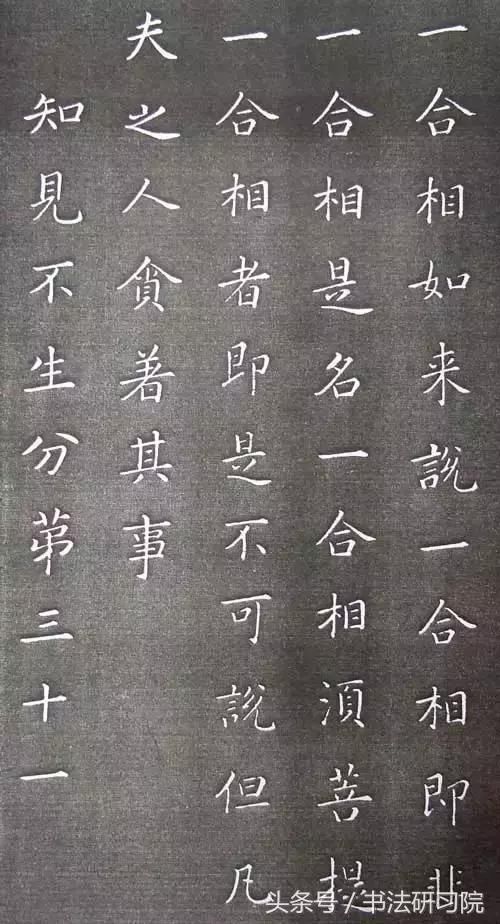 一合相如来說一合相即非
一合相是名一合相須菩提
一合相者即是不可說但凡
夫之人貪著其事
知見不生分苐三十一
头条号/书法研习院